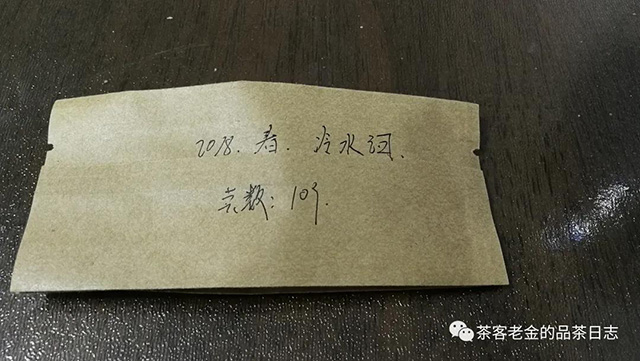 2018. 春. 冷水河.
克数: 10g.
茶客老金的品茶日志